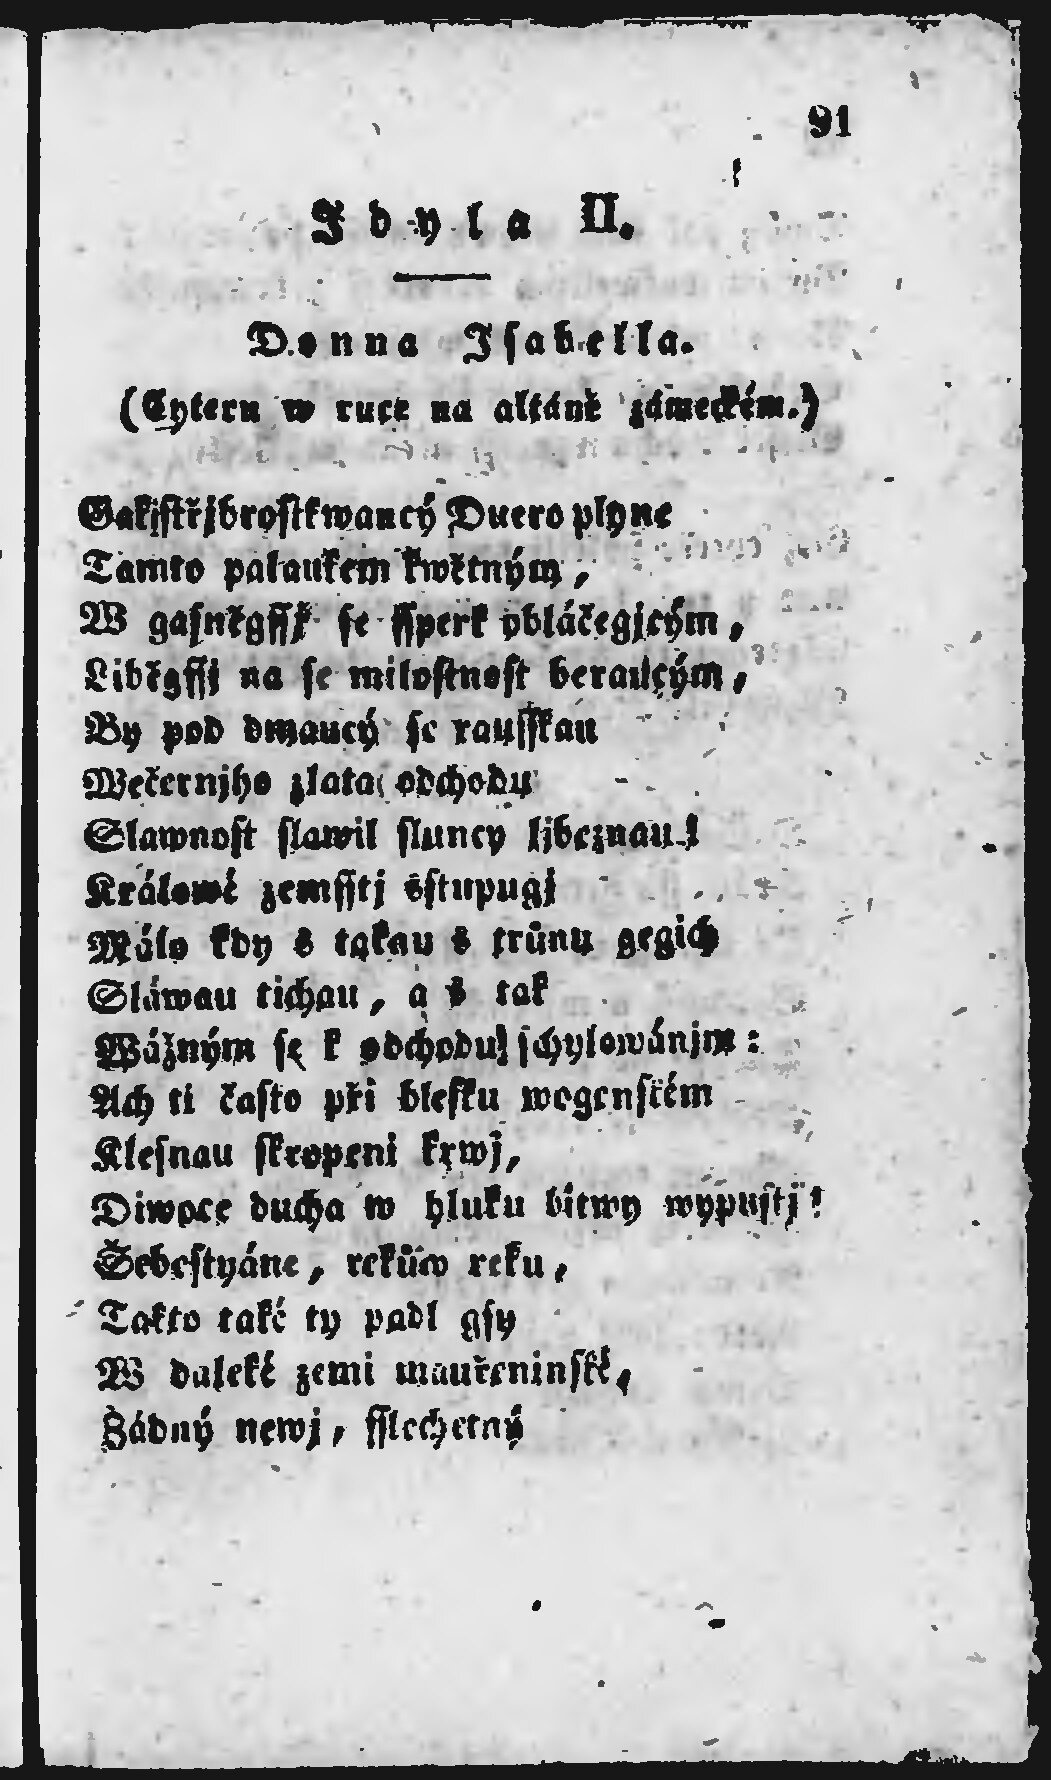 91
Idyla II.
Donna Isabella.
(Cyteru w ruce na altáně zámeckém.)
Gak střjbroskwaucý Duero plyne
Tamto palaukem kwětným,
W gasněgssj se ssperk obláčegjcým,
Liběgssj na se milostnost beraucým,
By pod dmaucý se rausskau
Wečernjho zlata odchodu
Slawnost slawil sluncy ljbeznau!
Králowé zemsstj sstupugj
Málo kdy s takau s trůnu gegich
Sláwau tichau, a s tak
Wážným se k odchodu schylowánjm:
Ach ti často při blesku wogenském
Klesnau skropeni krwj,
Diwoce ducha w hluku bitwy wypustj!
Šebestyáne, rekůw reku,
Takto také ty padl gsy
W daleké zemi mauřeninské,
Žádný newj, sslechetný